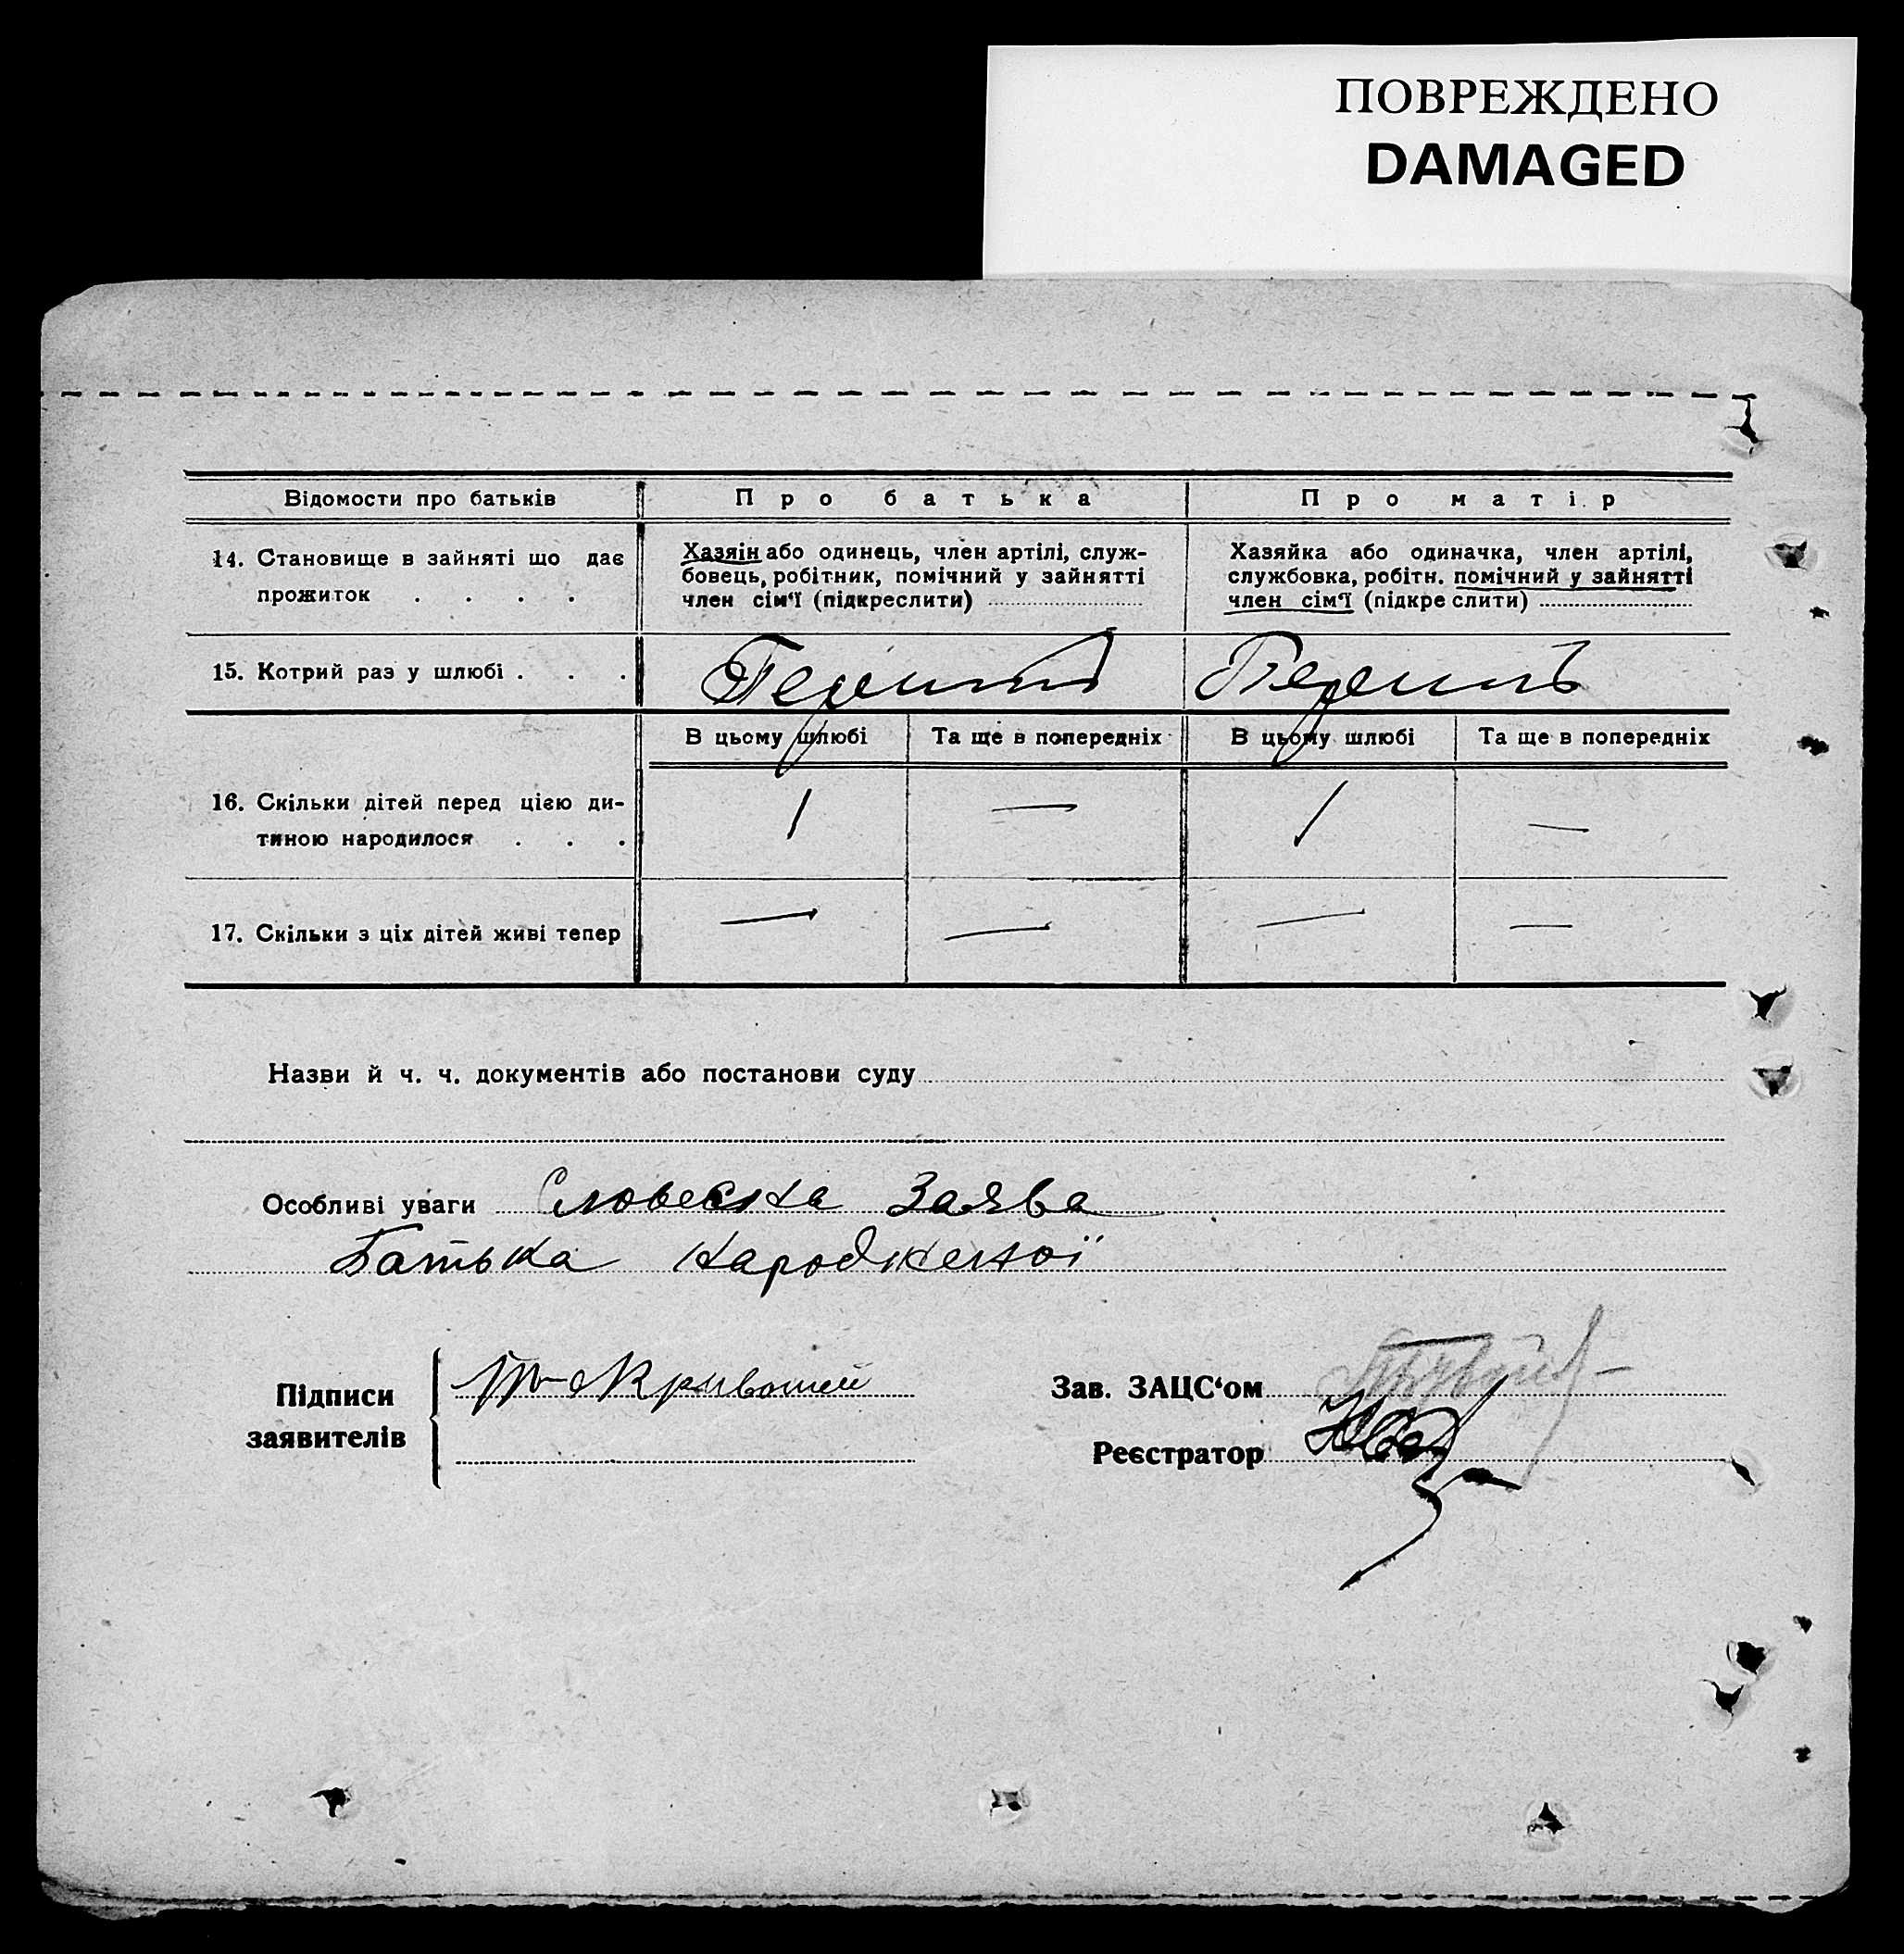 ПОВРЕЖДЕНО
DAMAGED
Відомости про батьків
Про батька
Про матір
14. Становище в зайняті що дає
прожиток . . . .
Хазяін або одинець, член артілі, служ-
бовець, робітник, помічний у зайнятті
член сім‘ї (підкреслити)
Хазяйка або одиначка, член артілі,
службовка, робітн. помічний у зайнятті
член сім‘ї (підкреслити)
15. Котрий раз у шлюбі . . .
В цьому шлюбі
Та ще в попередніх
В цьому шлюбі
Та ще в попередніх
16. Скільки дітей перед цією ди-
тиною народилося . . .
1 — 1 —
17. Скільки з ціх дітей живі тепер
— — — —
Назви й ч. ч. документів або постанови суду
Особливі уваги Словесна Заява
Батька народженої
Підписи
заявителів
Кривошей
Зав. ЗАЦС‘ом
Реєстратор